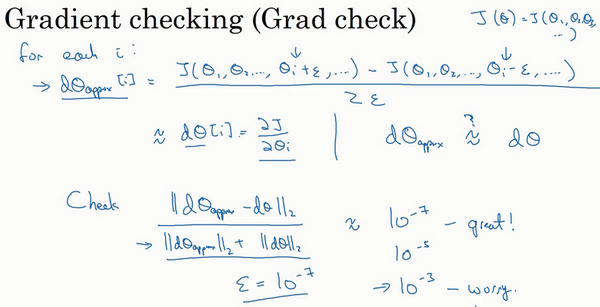 Gradient checking (Grad check)
J(θ) = J(θ₁, θ₂, θ₃, ...)
for each i:
→ dθapprox[i] = J(θ₁, θ₂, ..., θᵢ+ε, ...) - J(θ₁, θ₂, ..., θᵢ-ε, ...)
2ε
≈ dθ[i] = ∂J/∂θᵢ | dθapprox ≈? dθ
Check ‖dθapprox - dθ‖₂ ≈ 10⁻⁷ - great!
→ ‖dθapprox‖₂ + ‖dθ‖₂ 10⁻⁵
ε = 10⁻⁷ → 10⁻³ - worry.